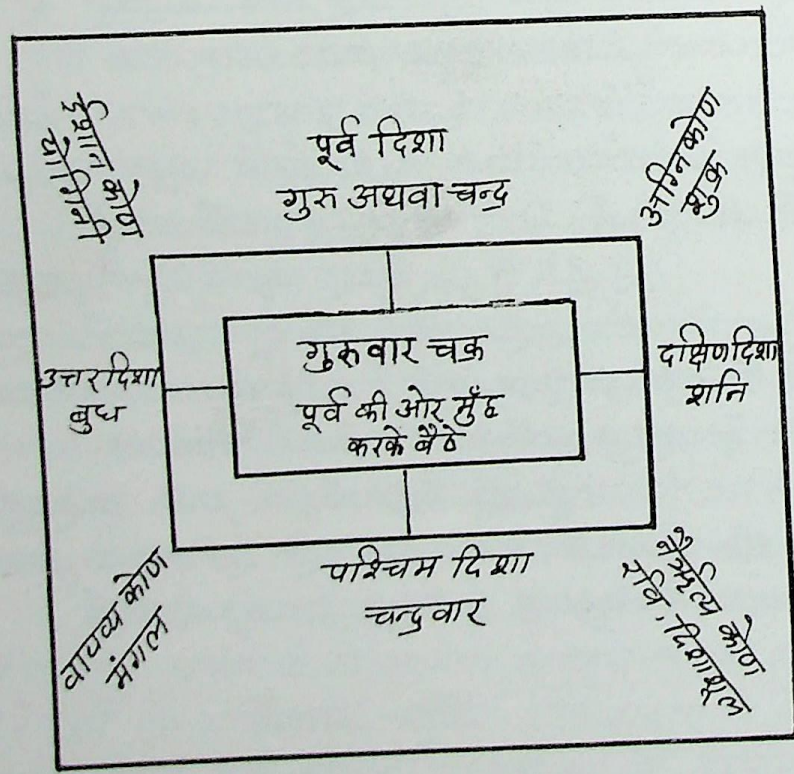 ईशान कोण
योगिनी
पूर्व दिशा
गुरु अथवा चन्द्र
अग्नि कोण
शुक्र
उत्तर दिशा
बुध
गुरुवार चक्र
पूर्व की ओर मुँह
करके बैठे
दक्षिण दिशा
शनि
वायव्य कोण
मंगल
पश्चिम दिशा
चन्द्रवार
नैर्ऋत्य कोण
रवि, दिशाशूल